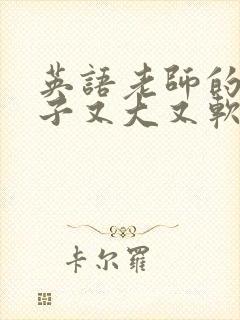 英語老師的
子又大又軟
卡尔羅